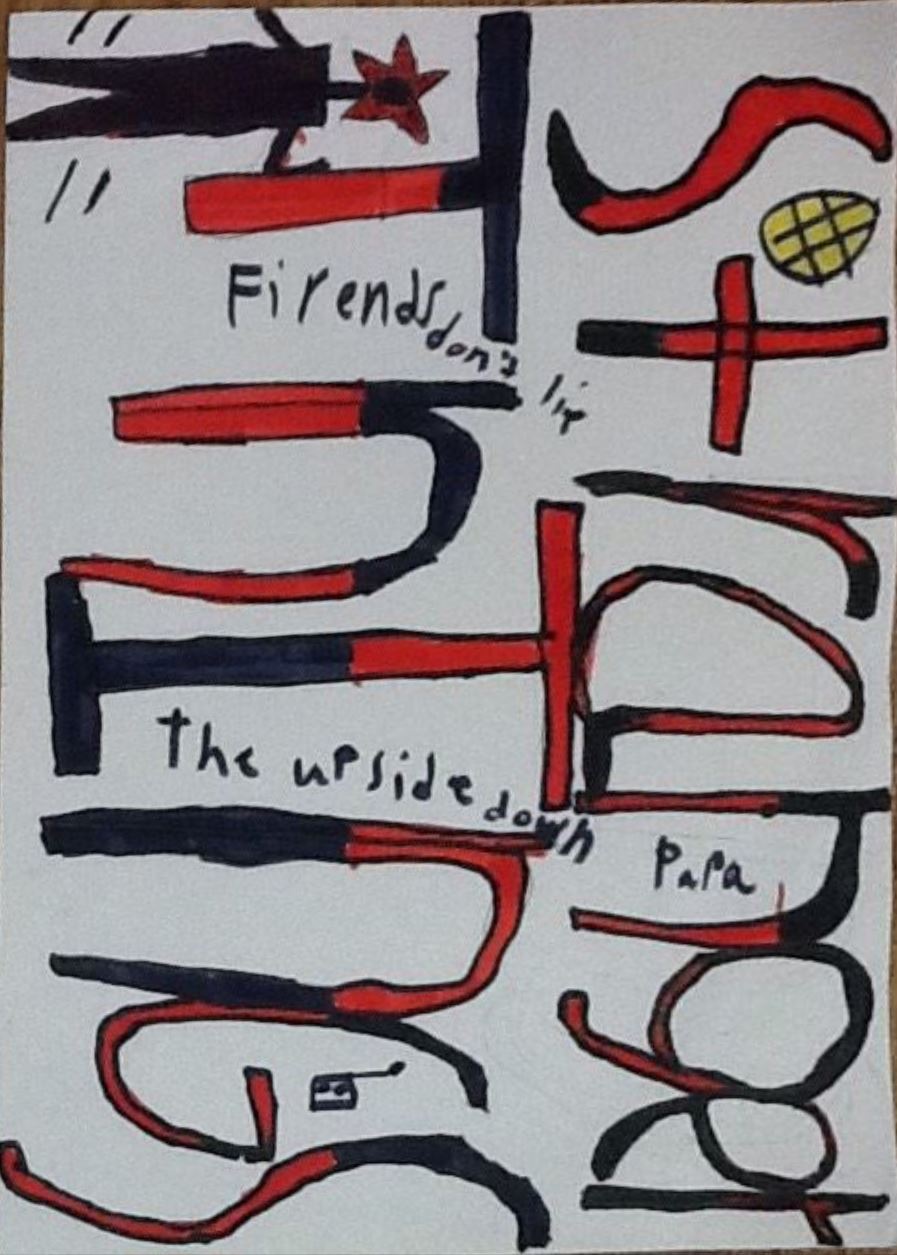 Stranger
ThIngs
Firends don't
The upside down
Papa